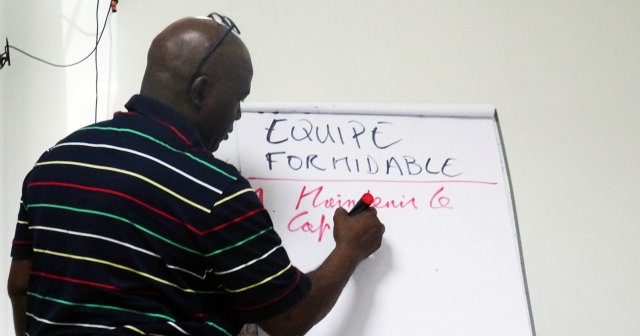 EQUIPE
FORMIDABLE
1. Maintenir le
Cap